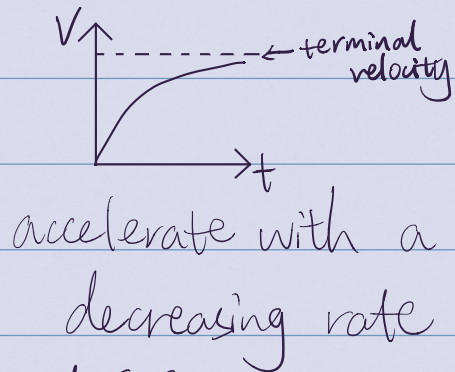 V
terminal
velocity
t
accelerate with a
decreasing rate